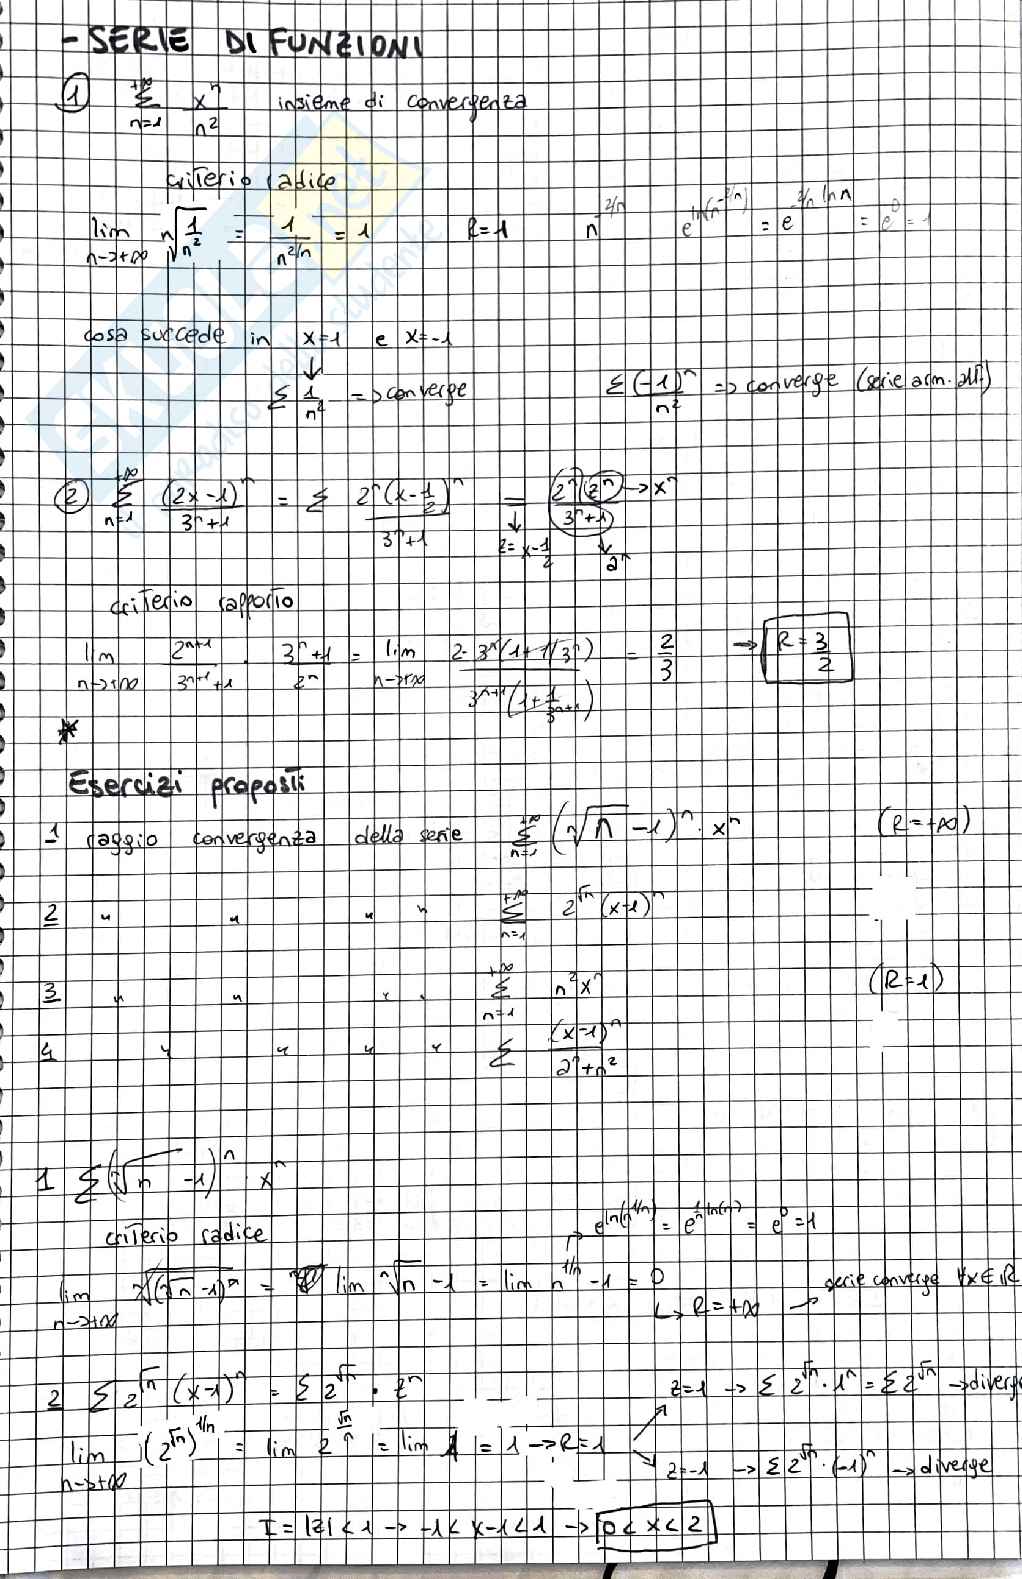 - SERIE DI FUNZIONI
① +∞ Σ n=1 x^n / n^2 insieme di convergenza
criterio radice
lim n->+∞ n√(1/n^2) = 1/n^(2/n) = 1 R=1 n^(-2/n) e^(ln(n^(-2/n))) = e^(-2/n ln n) = e^0 = 1
cosa succede in x=1 e x=-1
↓
Σ 1/n^2 => converge Σ (-1)^n / n^2 => converge (serie arm. alt.)
② +∞ Σ n=1 (2x-1)^n / 3^n+1 = Σ 2^n (x-1/2)^n / 3^n+1 = 2^n z^n / 3^n+1 → x^n
↓ z = x-1/2 ↓ a^n
criterio rapporto
lim n->+∞ 2^(n+1) / 3^(n+1)+1 · 3^n+1 / 2^n = lim n->+∞ 2·3^n(1+1/3^n) / 3^(n+1)(1+1/3^(n+1)) = 2/3 → R = 3/2
*
Esercizi proposti
1 raggio convergenza della serie +∞ Σ n=1 (n√n -1)^n · x^n (R=+∞)
2 " " " " +∞ Σ n=1 2^√n (x-1)^n
3 " " " " +∞ Σ n=1 n^2 x^n (R=1)
4 " " " " Σ (x-1)^n / 2^n+n^2
1 Σ (n√n -1)^n · x^n
→ e^(ln(n^(1/n))) = e^(1/n ln(n)) = e^0 = 1
criterio radice
lim n->+∞ n√((n√n -1)^n) = lim n√n -1 = lim n^(1/n) -1 = 0 serie converge ∀x∈ℝ
↳ R=+∞ →
2 Σ 2^√n (x-1)^n = Σ 2^√n · z^n z=1 → Σ 2^√n · 1^n = Σ 2^√n → diverge
lim n->+∞ (2^√n)^(1/n) = lim 2^(√n/n) = lim 1 = 1 → R=1
z=-1 → Σ 2^√n · (-1)^n → diverge
I = |z| < 1 → -1 < x-1 < 1 → 0 < x < 2